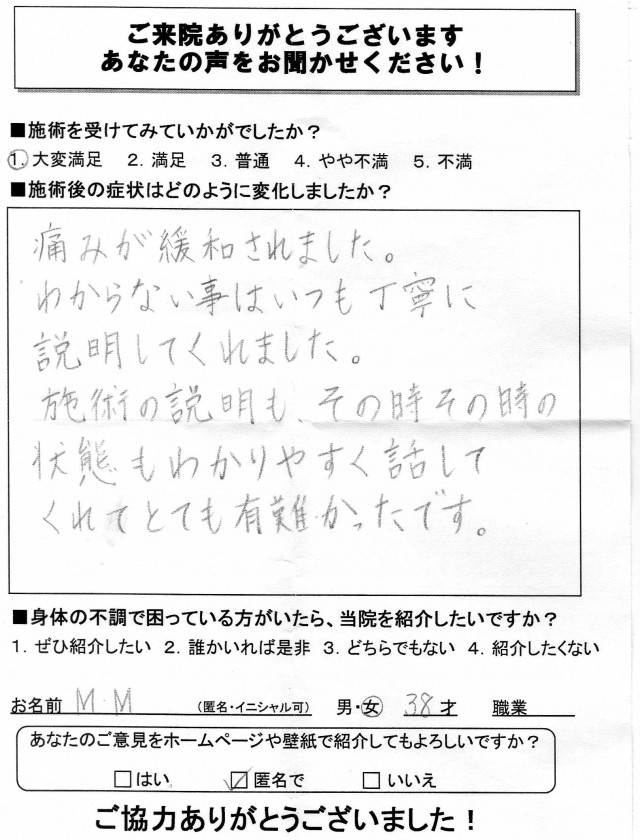 ご来院ありがとうございます
あなたの声をお聞かせください！
■施術を受けてみていかがでしたか？
1. 大変満足　2. 満足　3. 普通　4. やや不満　5. 不満
■施術後の症状はどのように変化しましたか？
痛みが緩和されました。
わからない事はいつも丁寧に
説明してくれました。
施術の説明も、その時その時の
状態もわかりやすく話して
くれてとても有難かったです。
■身体の不調で困っている方がいたら、当院を紹介したいですか？
1. ぜひ紹介したい　2. 誰かいれば是非　3. どちらでもない　4. 紹介したくない
お名前　M.M　（匿名・イニシャル可）　男・女　38才　職業
あなたのご意見をホームページや壁紙で紹介してもよろしいですか？
□はい　☑匿名で　□いいえ
ご協力ありがとうございました！